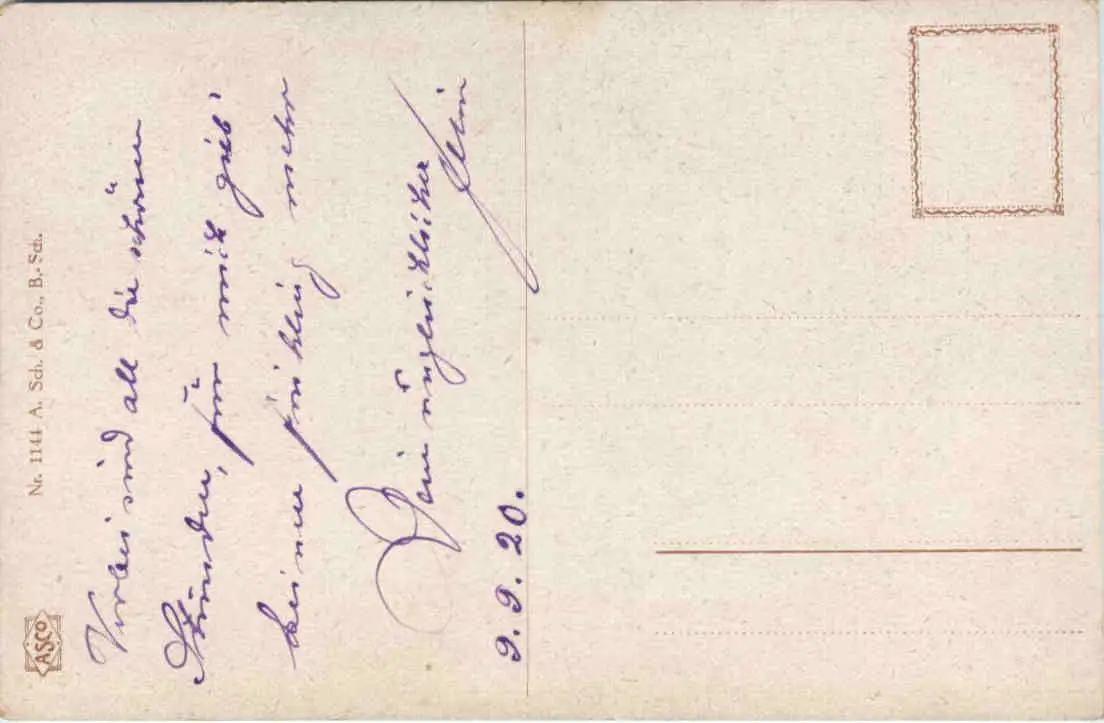 Vorbei sind all die schönen
Stunden, für mich gieb'
keinen Frühling mehr
Dein unglücklicher
9. 9. 20.
Nr. 1144 A. Sch. & Co., B.-Sch.
ASCO